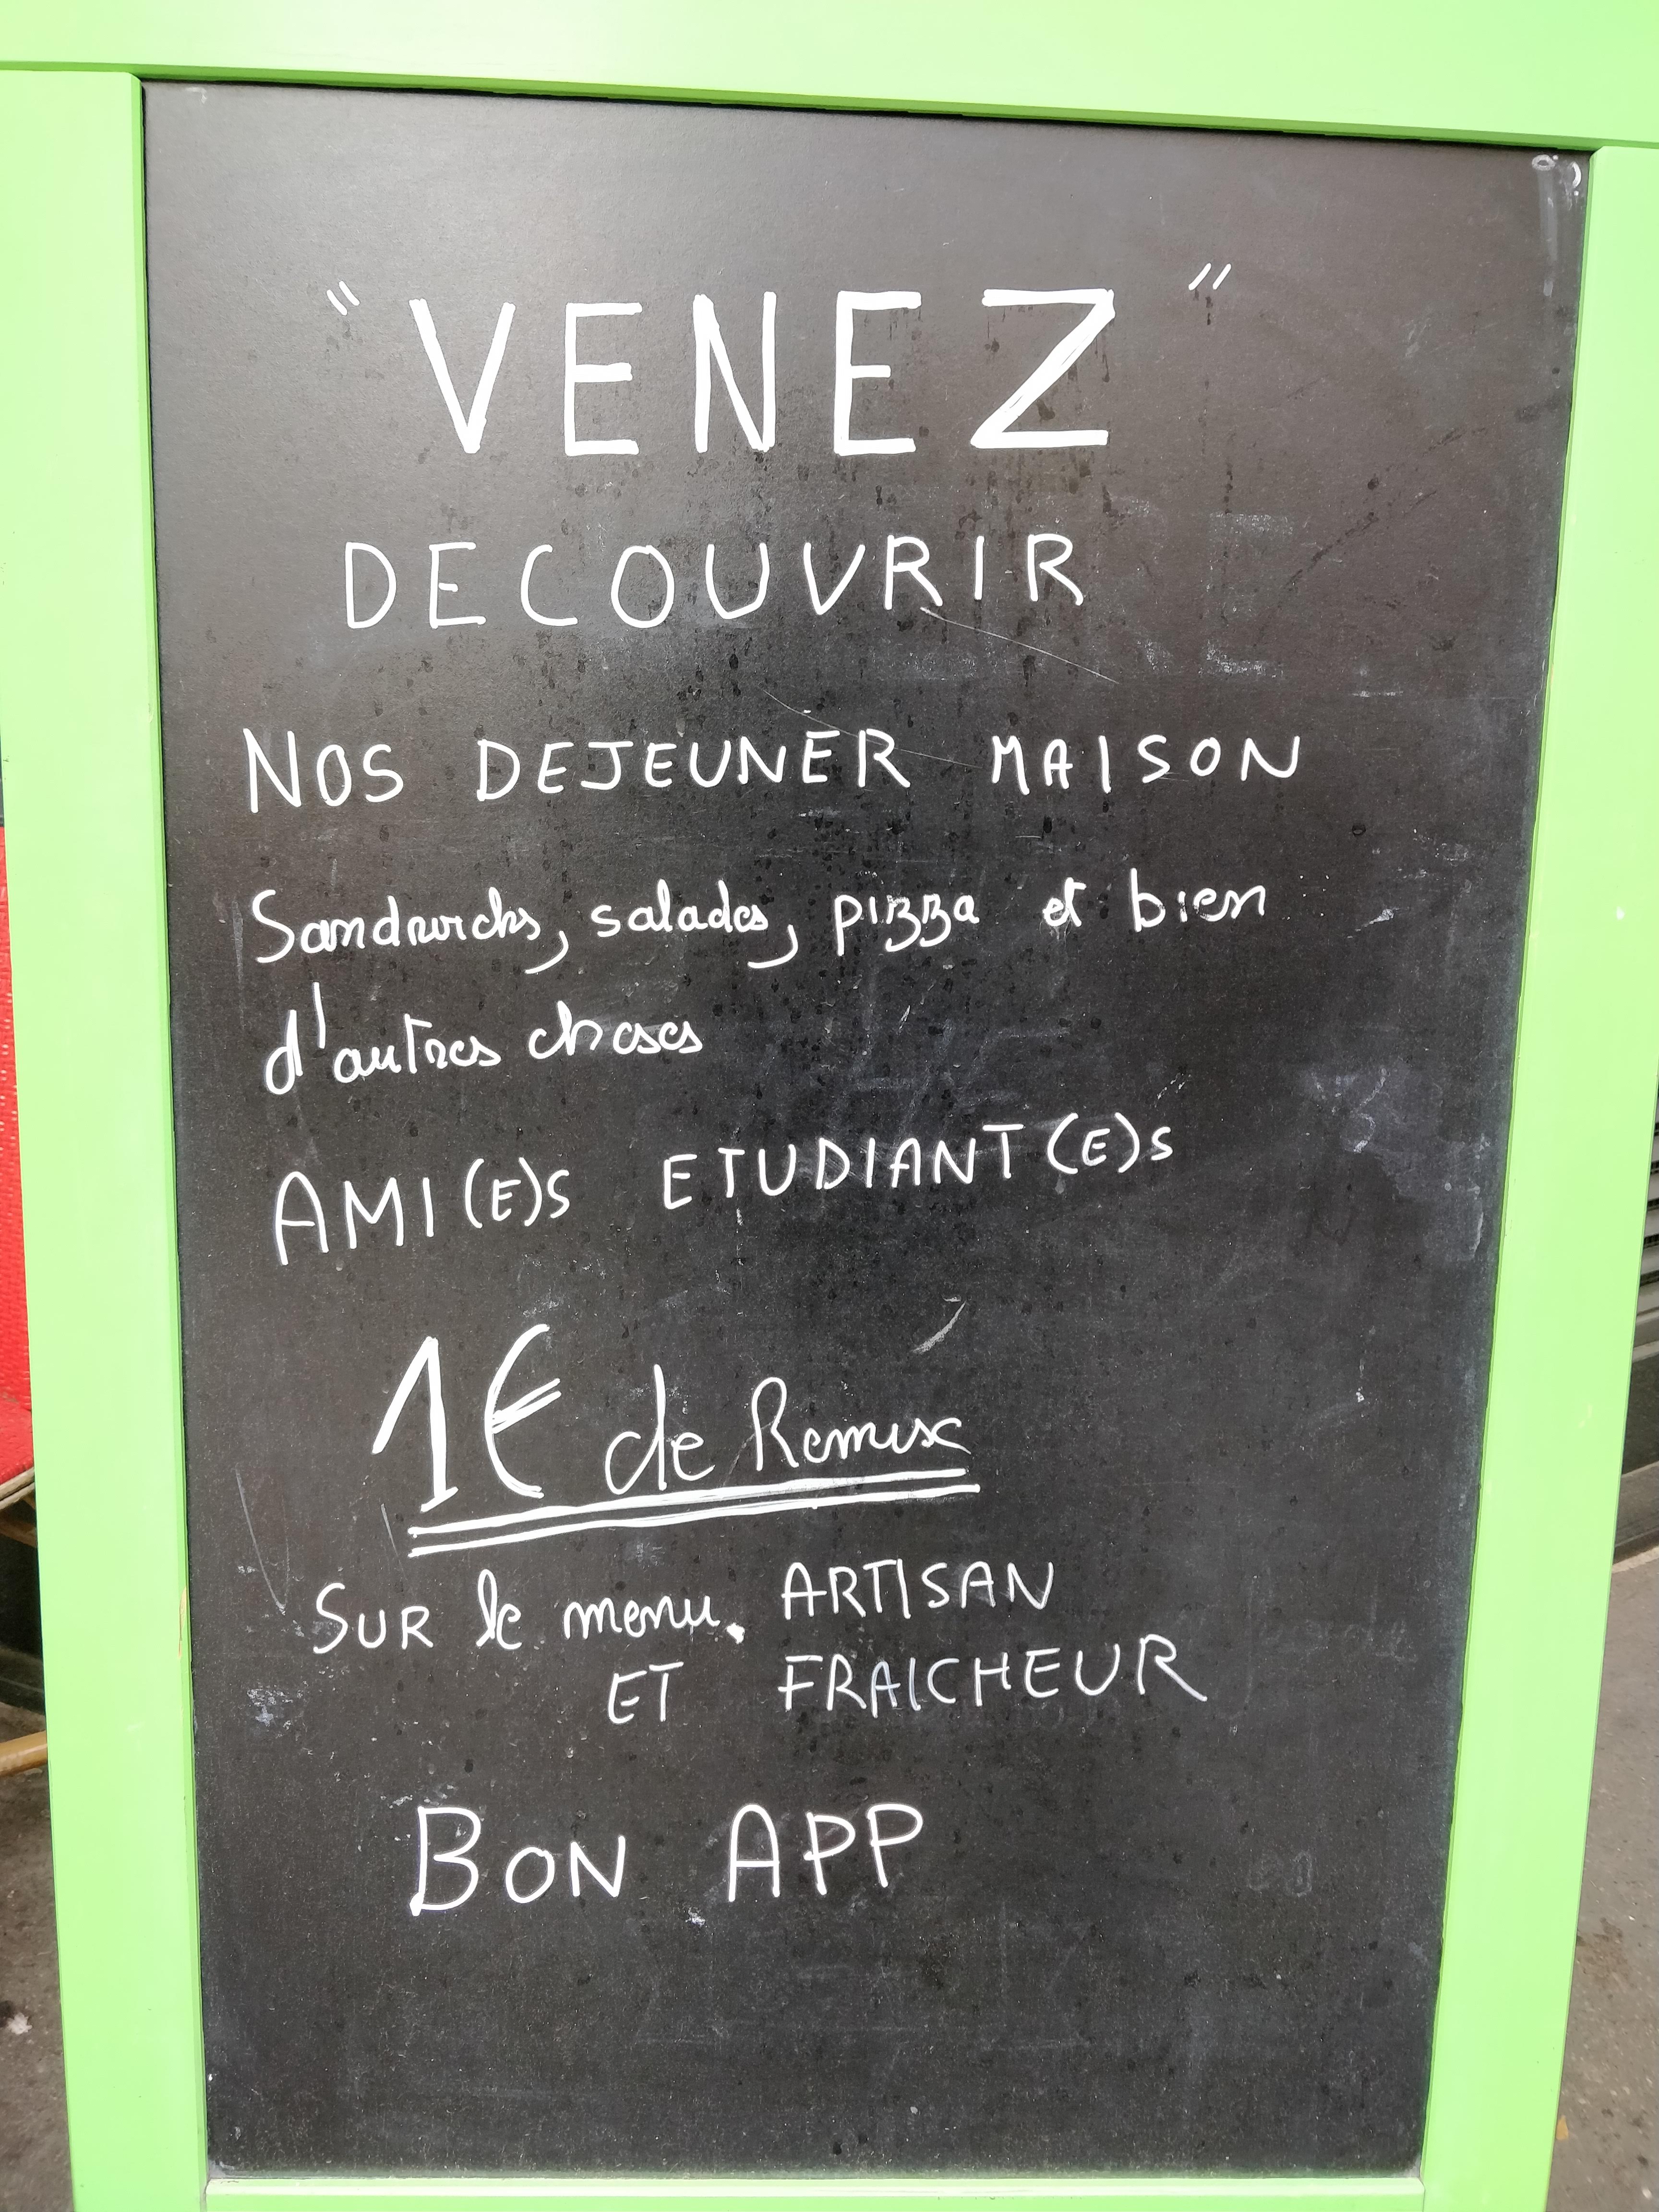 "VENEZ"
DECOUVRIR
NOS DEJEUNER MAISON
Sandwichs, salades, pizza et bien
d'autres choses
AMI(E)S ETUDIANT(E)S
1€ de Remise
SUR le menu. ARTISAN
ET FRAICHEUR
BON APP